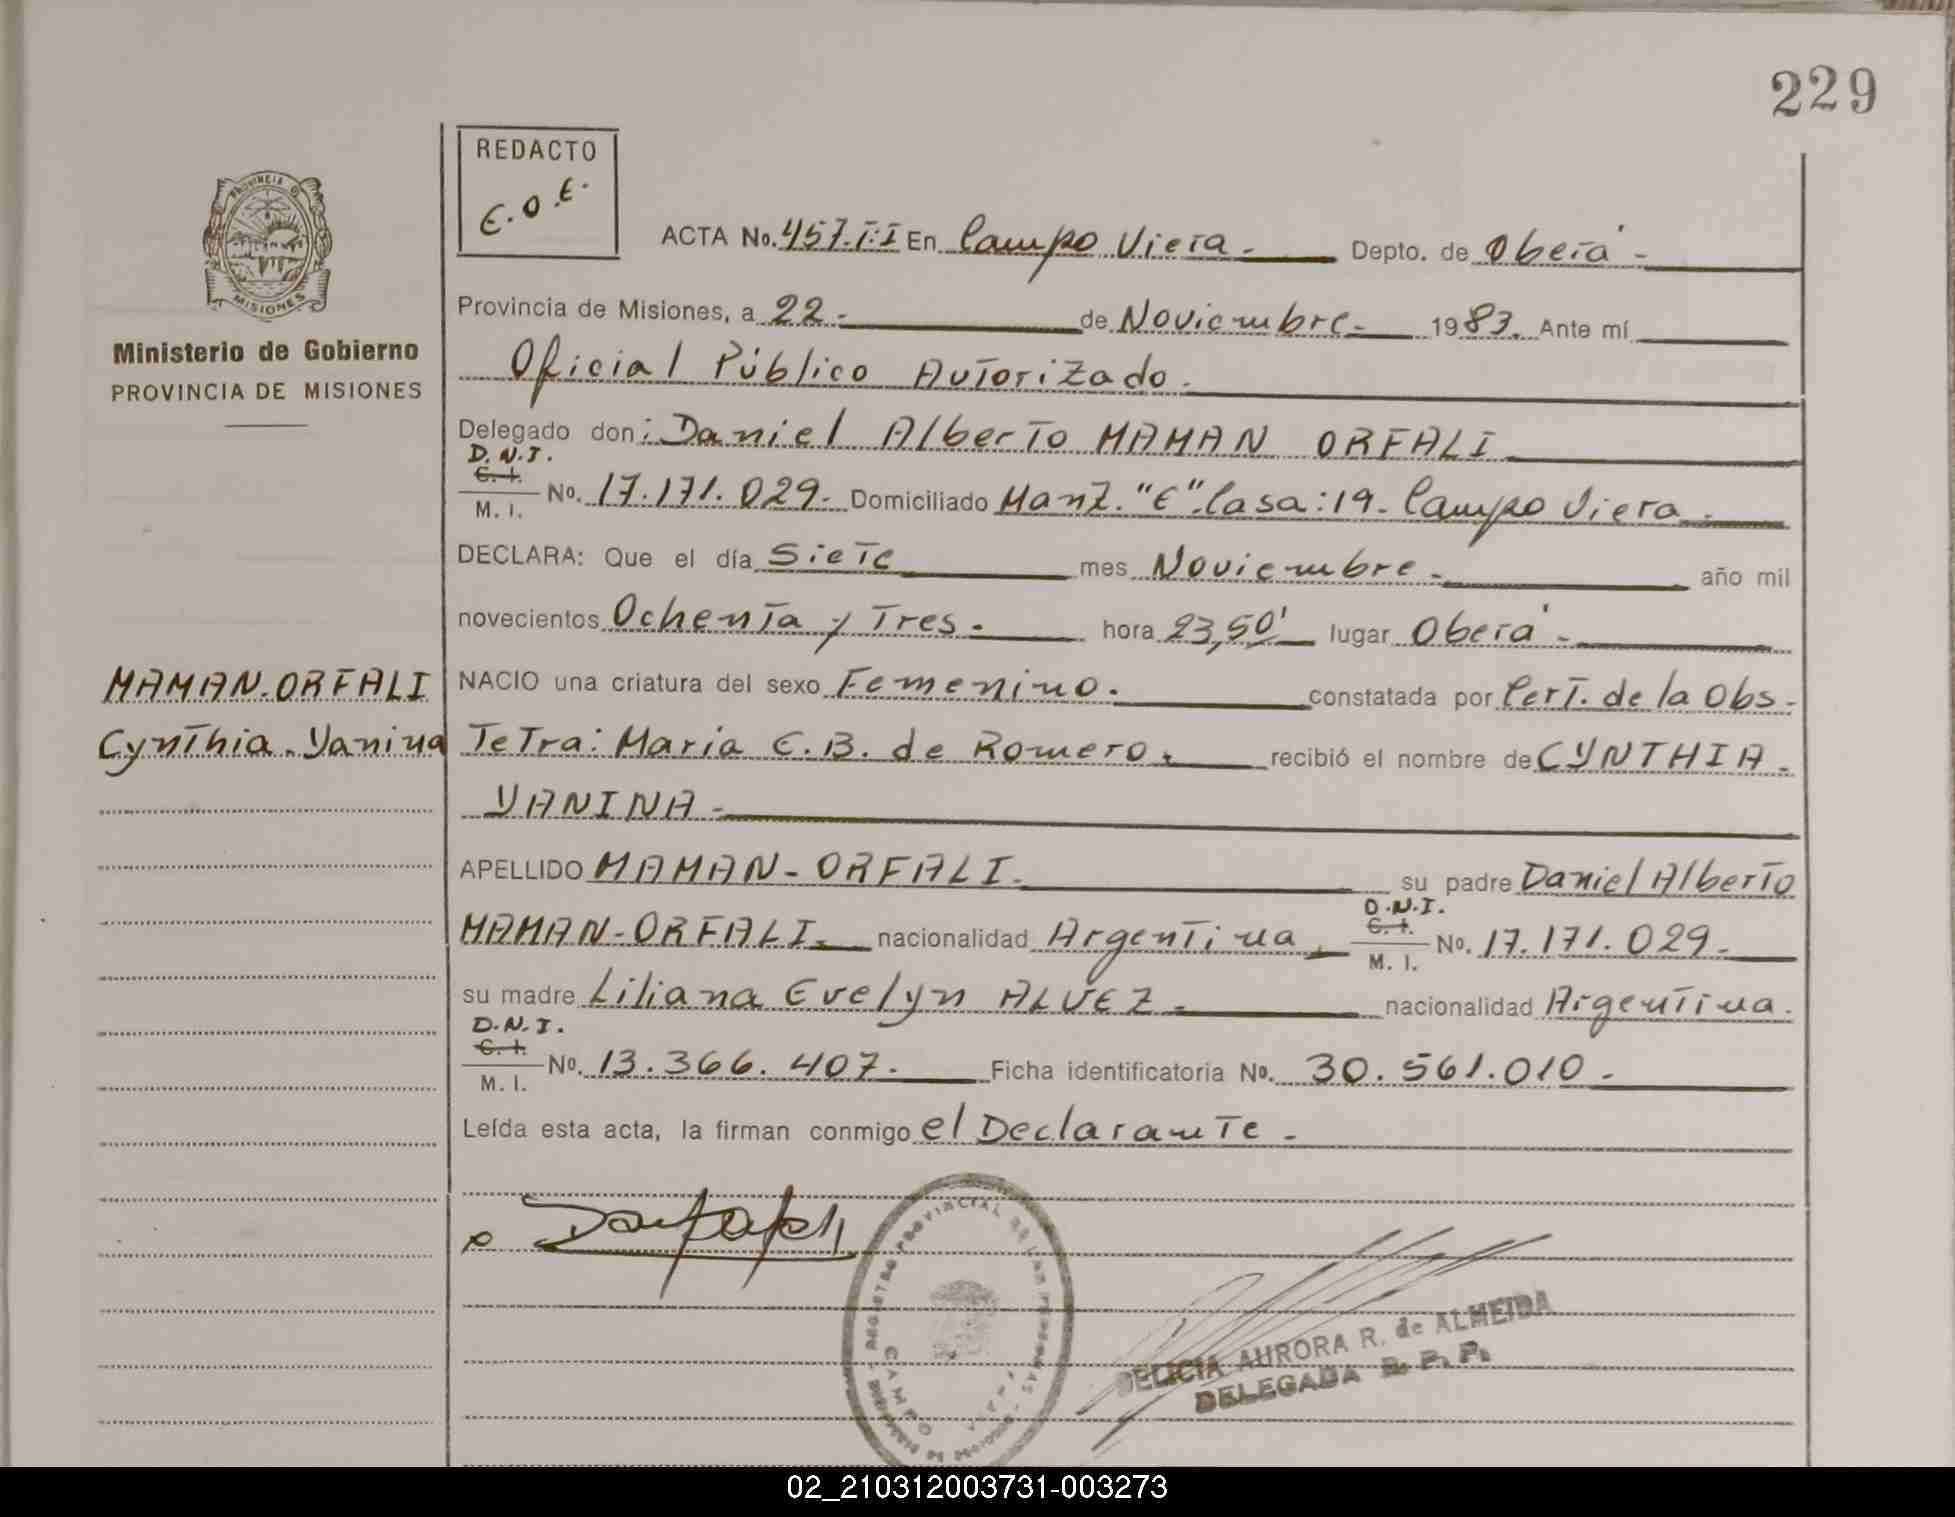 229
REDACTO
E.O.E.
PROVINCIA DE
MISIONES
Ministerio de Gobierno
PROVINCIA DE MISIONES
ACTA No. 457.T:I En Campo Viera.- Depto. de Oberá -
Provincia de Misiones, a 22.- de Noviembre.- 1983. Ante mí
Oficial Público Autorizado.
Delegado don: Daniel Alberto MAMAN ORFALI
D.N.I.
C. I.
M. I. No. 17.171.029.- Domiciliado Manz. "E". Casa: 19.- Campo Viera.-
DECLARA: Que el día Siete mes Noviembre.- año mil
novecientos Ochenta y Tres.- hora 23,50' lugar Oberá.-
MAMAN-ORFALI
Cynthia Yanina
NACIO una criatura del sexo Femenino.- constatada por Cert. de la Obs-
Tetra: María C.B. de Romero.- recibió el nombre de CYNTHIA-
YANINA-
APELLIDO MAMAN-ORFALI.- su padre Daniel Alberto
MAMAN-ORFALI.- nacionalidad Argentina.-
D.N.I.
C. I.
M. I. No. 17.171.029.-
su madre Liliana Evelyn ALVEZ.- nacionalidad Argentina.
D.N.I.
C. I.
M. I. No. 13.366.407.- Ficha identificatoria No. 30.561.010.-
Leída esta acta, la firman conmigo el Declarante.-
REGISTRO PROVINCIAL DE LAS PERSONAS
CAMPO VIERA
DELICIA AURORA R. de ALMEIDA
DELEGADA R. P. P.
02_210312003731-003273